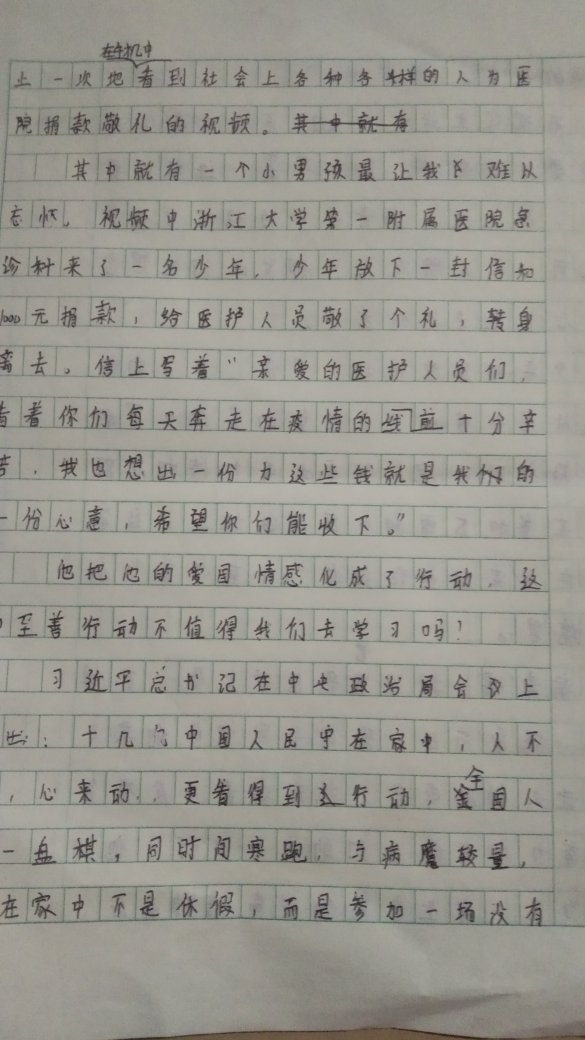 在手机中
止一次地看到社会上各种各样的人为医
院捐款敬礼的视频。其中就有
其中就有一个小男孩最让我难以
忘怀。视频中浙江大学第一附属医院急
诊科来了一名少年,少年放下一封信和
1000元捐款,给医护人员敬了个礼,转身
离去。信上写着“亲爱的医护人员们,
看着你们每天奔走在疫情的线前十分辛
苦,我也想出一份力这些钱就是我的
一份心意,希望你们能收下。”
他把他的爱国情感化成了行动,这
至善行动不值得我们去学习吗!
习近平总书记在中央政治局会议上
出:十几亿中国人民守在家中,人不
,心来动,更看得到这行动,全国人
一盘棋,同时间赛跑,与病魔较量,
在家中不是休假,而是参加一场没有